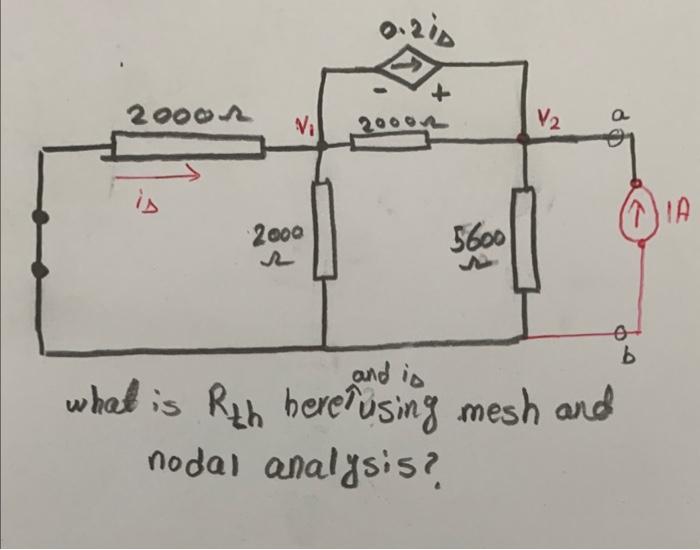 0.2i∆
- +
2000Ω V₁ 2000Ω V₂ a
i∆
2000 Ω
5600 Ω
1A
b
what is Rth here and i∆ using mesh and
nodal analysis?